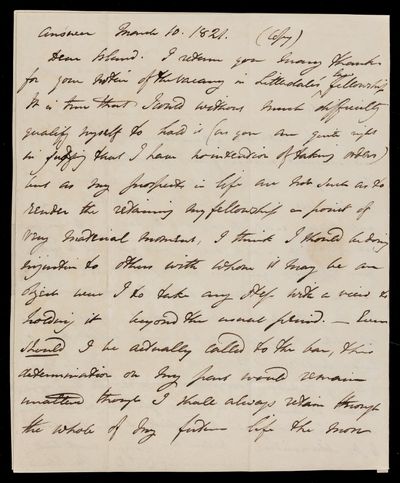 Answer March 10. 1821. (Copy)
Dear Bland. I return you many thanks
for your notice of the vacancy in Littledale's Law fellowship
It is true that I could without much difficulty
qualify myself to hold it (as you are quite right
in judging that I have no intention of taking orders)
but as my prospects in life are not such as to
render the retaining my fellowship a point of
very material moment, I think I should be doing
injustice to others with whom it may be an
object were I to take any step with a view to
holding it beyond the usual period. — Even
should I be actually called to the bar, this
determination on my part would remain
unaltered though I shall always retain through
the whole of my future life the most